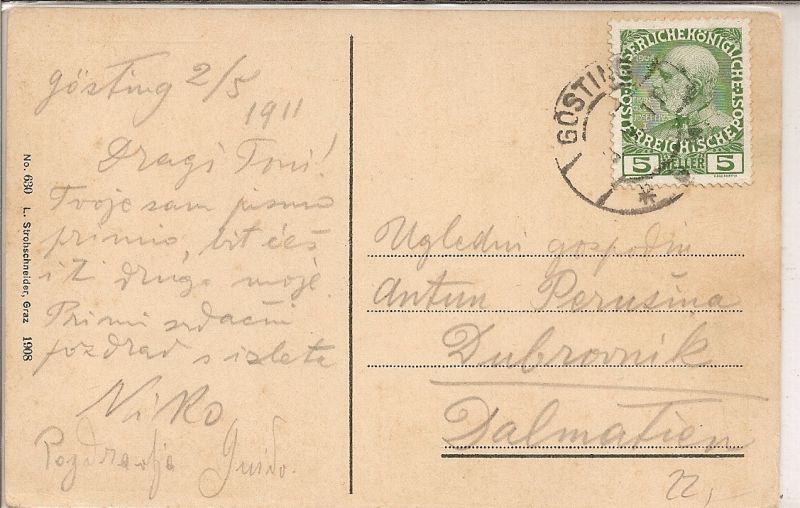 Gösting 2/5
1911
Dragi Toni!
Tvoje sam pismo
primio, bit ćeš
i ti drugo moje.
Primi srdačni
pozdrav s izleta
Niko
Pozdravlja Guido.
No. 630 L. Strohschneider, Graz 1908
GÖSTING
KAISERLICHEKÖNIGLICHE
ÖSTERREICHISCHE POST
1908
5 HELLER 5
Ugledni gospodin
Antun Perušina
Dubrovnik
Dalmatien
22,